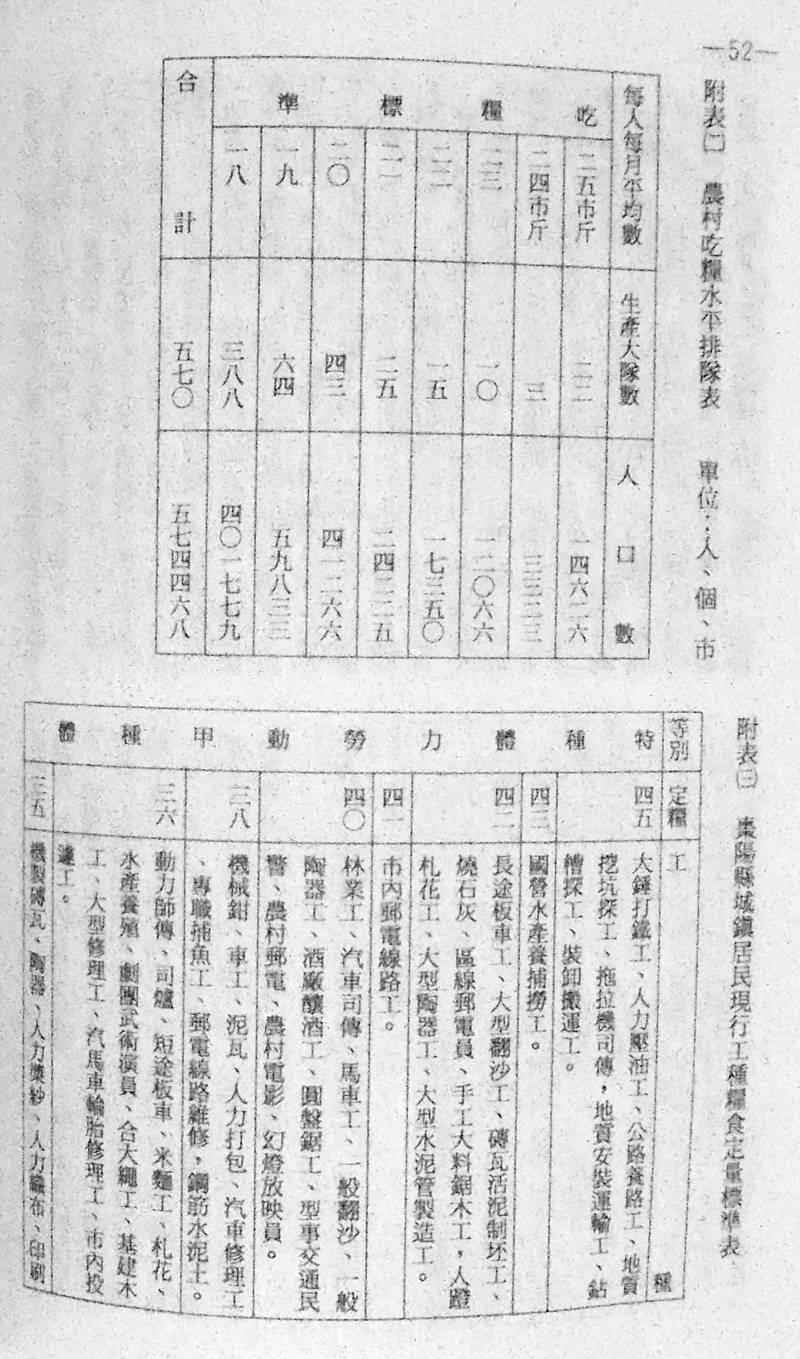 —52—
附表㈡ 農村吃糧水平排隊表 單位：人、個、市
每人每月平均數 生產大隊數 人口數
吃糧標準
二五市斤 二二 一四六二六
二四市斤 三 三三二三
二三 一〇 一二〇六六
二二 一五 一七三五〇
二一 二五 二四二二五
二〇 四三 四一二六六
一九 六四 五九八三三
一八 三八八 四〇一七七九
合計 五七〇 五七四四六八
附表㈢ 棗陽縣城鎮居民現行工種糧食定量標準表
等別 定糧 工種
特種體力勞動
四五 大錘打鐵工、人力壓油工、公路養路工、地質
挖坑探工、拖拉機司傳，地質安裝運輸工、鉆
槽探工、裝卸搬運工。
四三 國營水產養捕撈工。
四二 長途板車工、大型翻沙工、磚瓦活泥制坯工、
燒石灰、區線郵電員、手工大料鋸木工，人蹬
札花工、大型陶器工、大型水泥管製造工。
四一 市內郵電線路工。
四〇 林業工、汽車司傳、馬車工、一般翻沙、一般
陶器工、酒廠釀酒工、圓盤鋸工、型事交通民
警、農村郵電、農村電影、幻燈放映員。
甲種體
三八 機械鉗、車工、泥瓦、人力打包、汽車修理工
、專職捕魚工、郵電線路維修，鋼筋水泥工。
三六 動力師傳、司爐、短途板車、米麵工、札花、
水產養殖、劇團武術演員、合大繩工、基建木
工、大型修理工、汽馬車輪胎修理工、市內投
遞工。
三五 機製磚瓦、陶器、人力漿紗、人力織布、印刷